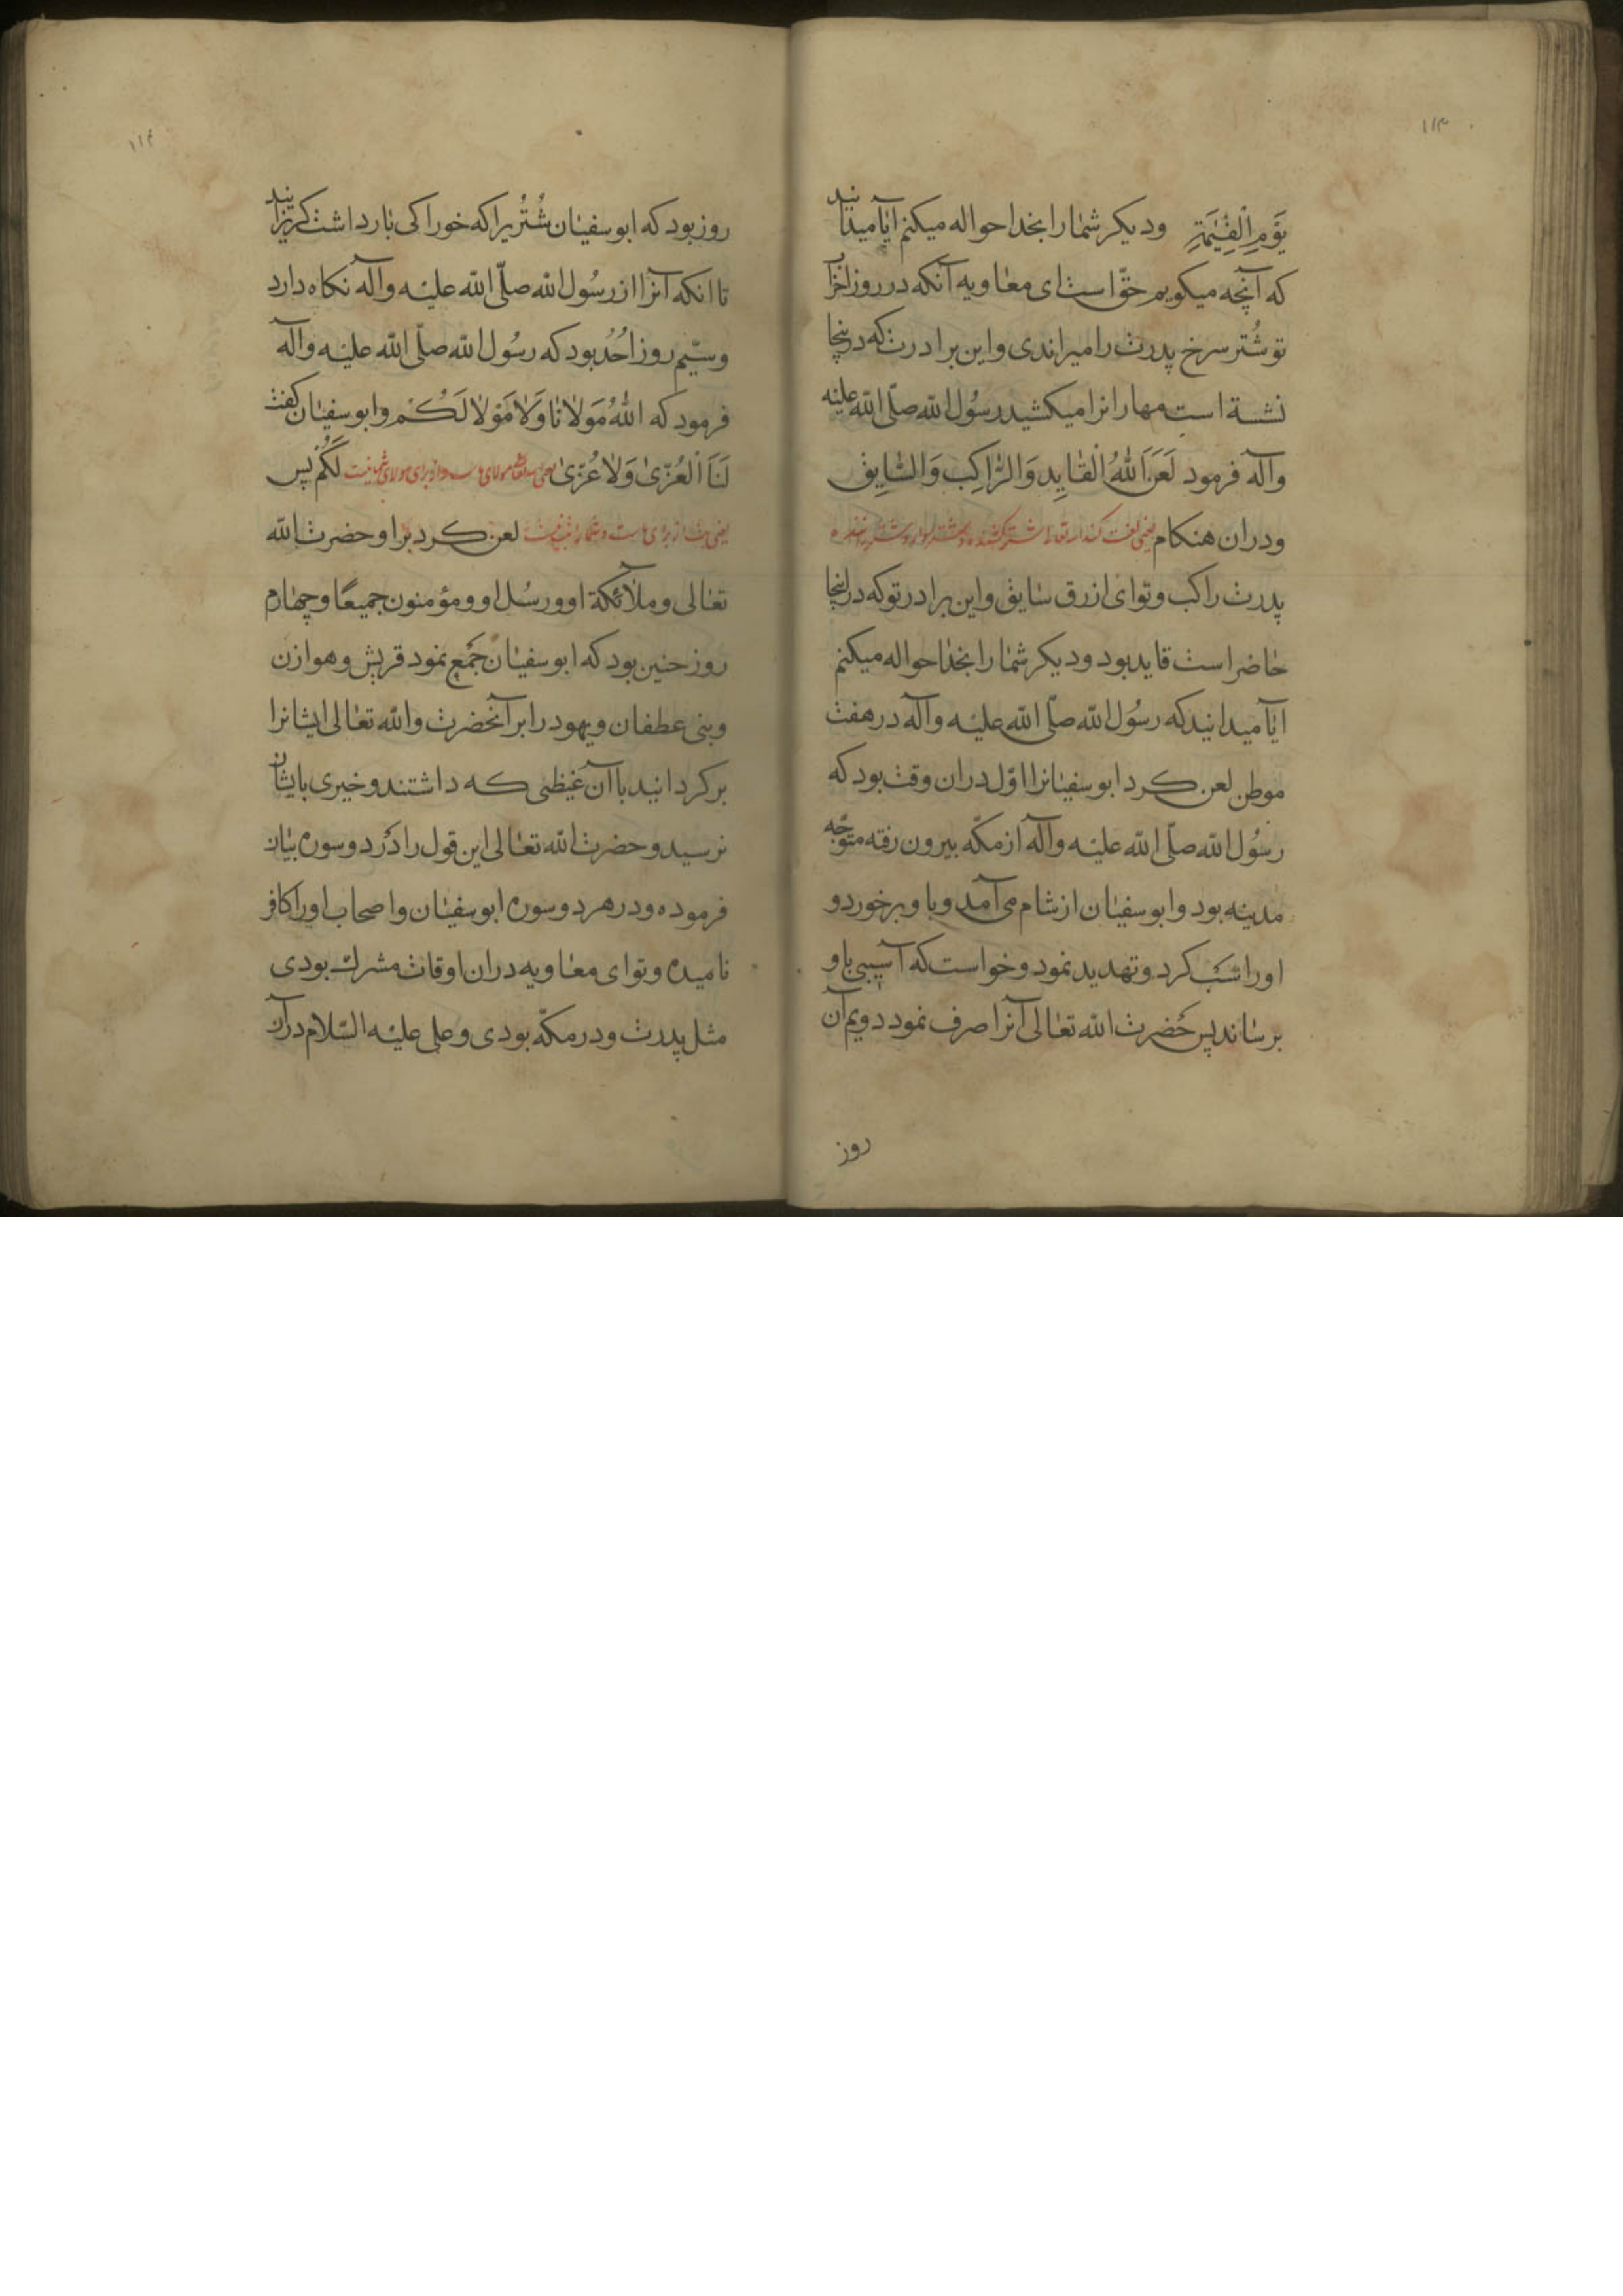 ۱۱۳
یَوْمِ الْقِیٰمَةِ ودیکر شما را بخدا حواله میکنم ایا میدانید
که آنچه میکویم حقّ است ای معاویه آنکه در روز احزاب
تو شُتر سرخ پدرت را میراندی و این برادرت که درینجا
نشسة است مهار انرا میکشید رسُول الله صلّی الله علیه
وآله فرمود لَعَنَ اللّٰهُ الْقٰایِد وَالرّٰاکِب وَالسّٰایِق
ودران هنکام یعنی لعنت کند الله تعالی
پدرت راکب و تو ای ازرق سٰایق واین برادر تو که در اینجا
حٰاضر است قاید بود ودیکر شما را بخدا حواله میکنم
ایا میدانید که رسُول الله صلّی الله علیه وآله در هفت
موطن لعن کرد ابوسفیٰانرا اوّل دران وقت بود که
رسُول الله صلّی الله علیه وآله از مکّه بیرون رفته متوجّه
مدینه بود وابوسفیٰان از شام می آمد و با و برخورد و
اورا سَبّ کرد و تهدید نمود و خواست که آسیبی باو
برسٰاند پس حَضرت الله تعٰالی آنرا صرف نمود دویم آن
روز
۱۱۴
روز بود که ابوسفیٰان شُتُریرا که خوراکی بٰار داشت کریزانید
تا انکه آنرا از رسُول الله صلّی الله علیه وآله نکاه دارد
وسیّم روز اُحُد بود که رسُول الله صلّی الله علیه وآله
فرمود که اللّٰهُ مَولانٰا وَلٰا مَوْلٰا لَکُمْ وابوسفیٰان کفت
لَنَا الْعُزّیٰ وَلٰا عُزّیٰ لَکُمْ پس
لعن کرد براو حضرت الله
تعٰالی وملٰائکة او ورسُل او ومؤمنون جمیعًا وچهٰارم
روز حنین بود که ابوسفیٰان جَمع نمود قریش وهوازن
وبنی عطفان ویهود را برآنحضرت والله تعٰالی ایشانرا
برکردانید باآن غیظی که داشتند وخیری بایشان
نرسید وحضرت الله تعٰالی این قول را دَر دوسوره بیٰان
فرموده ودر هر دوسوره ابوسفیٰان واصحاب اورا کافر
نامیده وتو ای معٰاویه دران اوقات مشرک بودی
مثل پدرت ودر مکّه بودی وعلی علیه السّلام دران